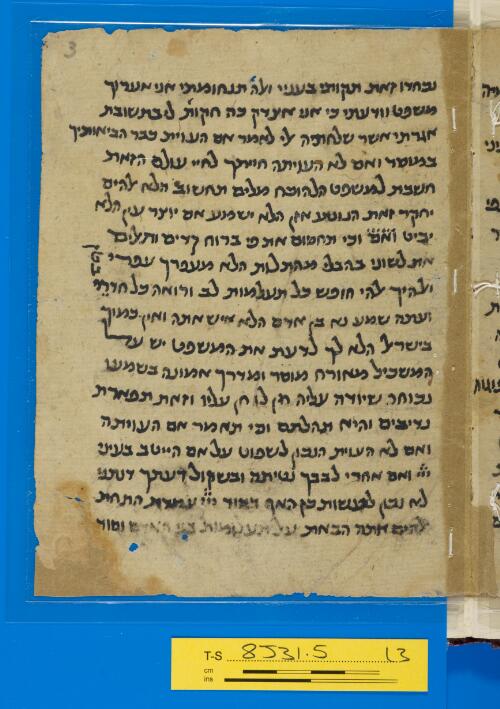 3
נבחרו זאת תקותי בעניי ועלה תנחומתי אני אערוך
משפט וידעתי כי אני אצדק כה חקות לבתשובת
אגרתי אשר שלחתיה לי לאמר אם העוית כבר הביאותיך
במוסר ואם לא העויתה חייתך לחיי עולם הזאת
חשבת למשפט הלהוכח מלים תחשוב הלא להים
יחקר זאת הנוטע אזן הלא ישמע אם יוצר עין הלא
יביט וכי תחסום את פי ברוח קדים ותלים
את לשוני בהבל מהתלות הלא מעפרך עפרי
ולהיך להי חופש כל תעלמות לב ורואה כל חדרי
ועתה שמע נא בן אדם הלא איש אתה ואין כמוך
בישרל הלא לך לדעת את המשפט יש על
המשכיל מאורח מוסר ומדרך אמונה בשמעו
נבוחר שיורה עליה חן לו חן עליו וזאת תפארת
נדיבים והיא תהלתם וכי תאמר אם העויתה
ואם לא העוית הנבון לשפוט על אם הייטב בעיני
ייי ואם אחרי לבבך נטיתה ובשקול דעתך דנתני
לא נכון לעשות כן האף דבור ייי עמדת התחת
להים אתה הבאת על תעלמות בני האדם וסוד
T-S 8J31.5 L3
cm
ins